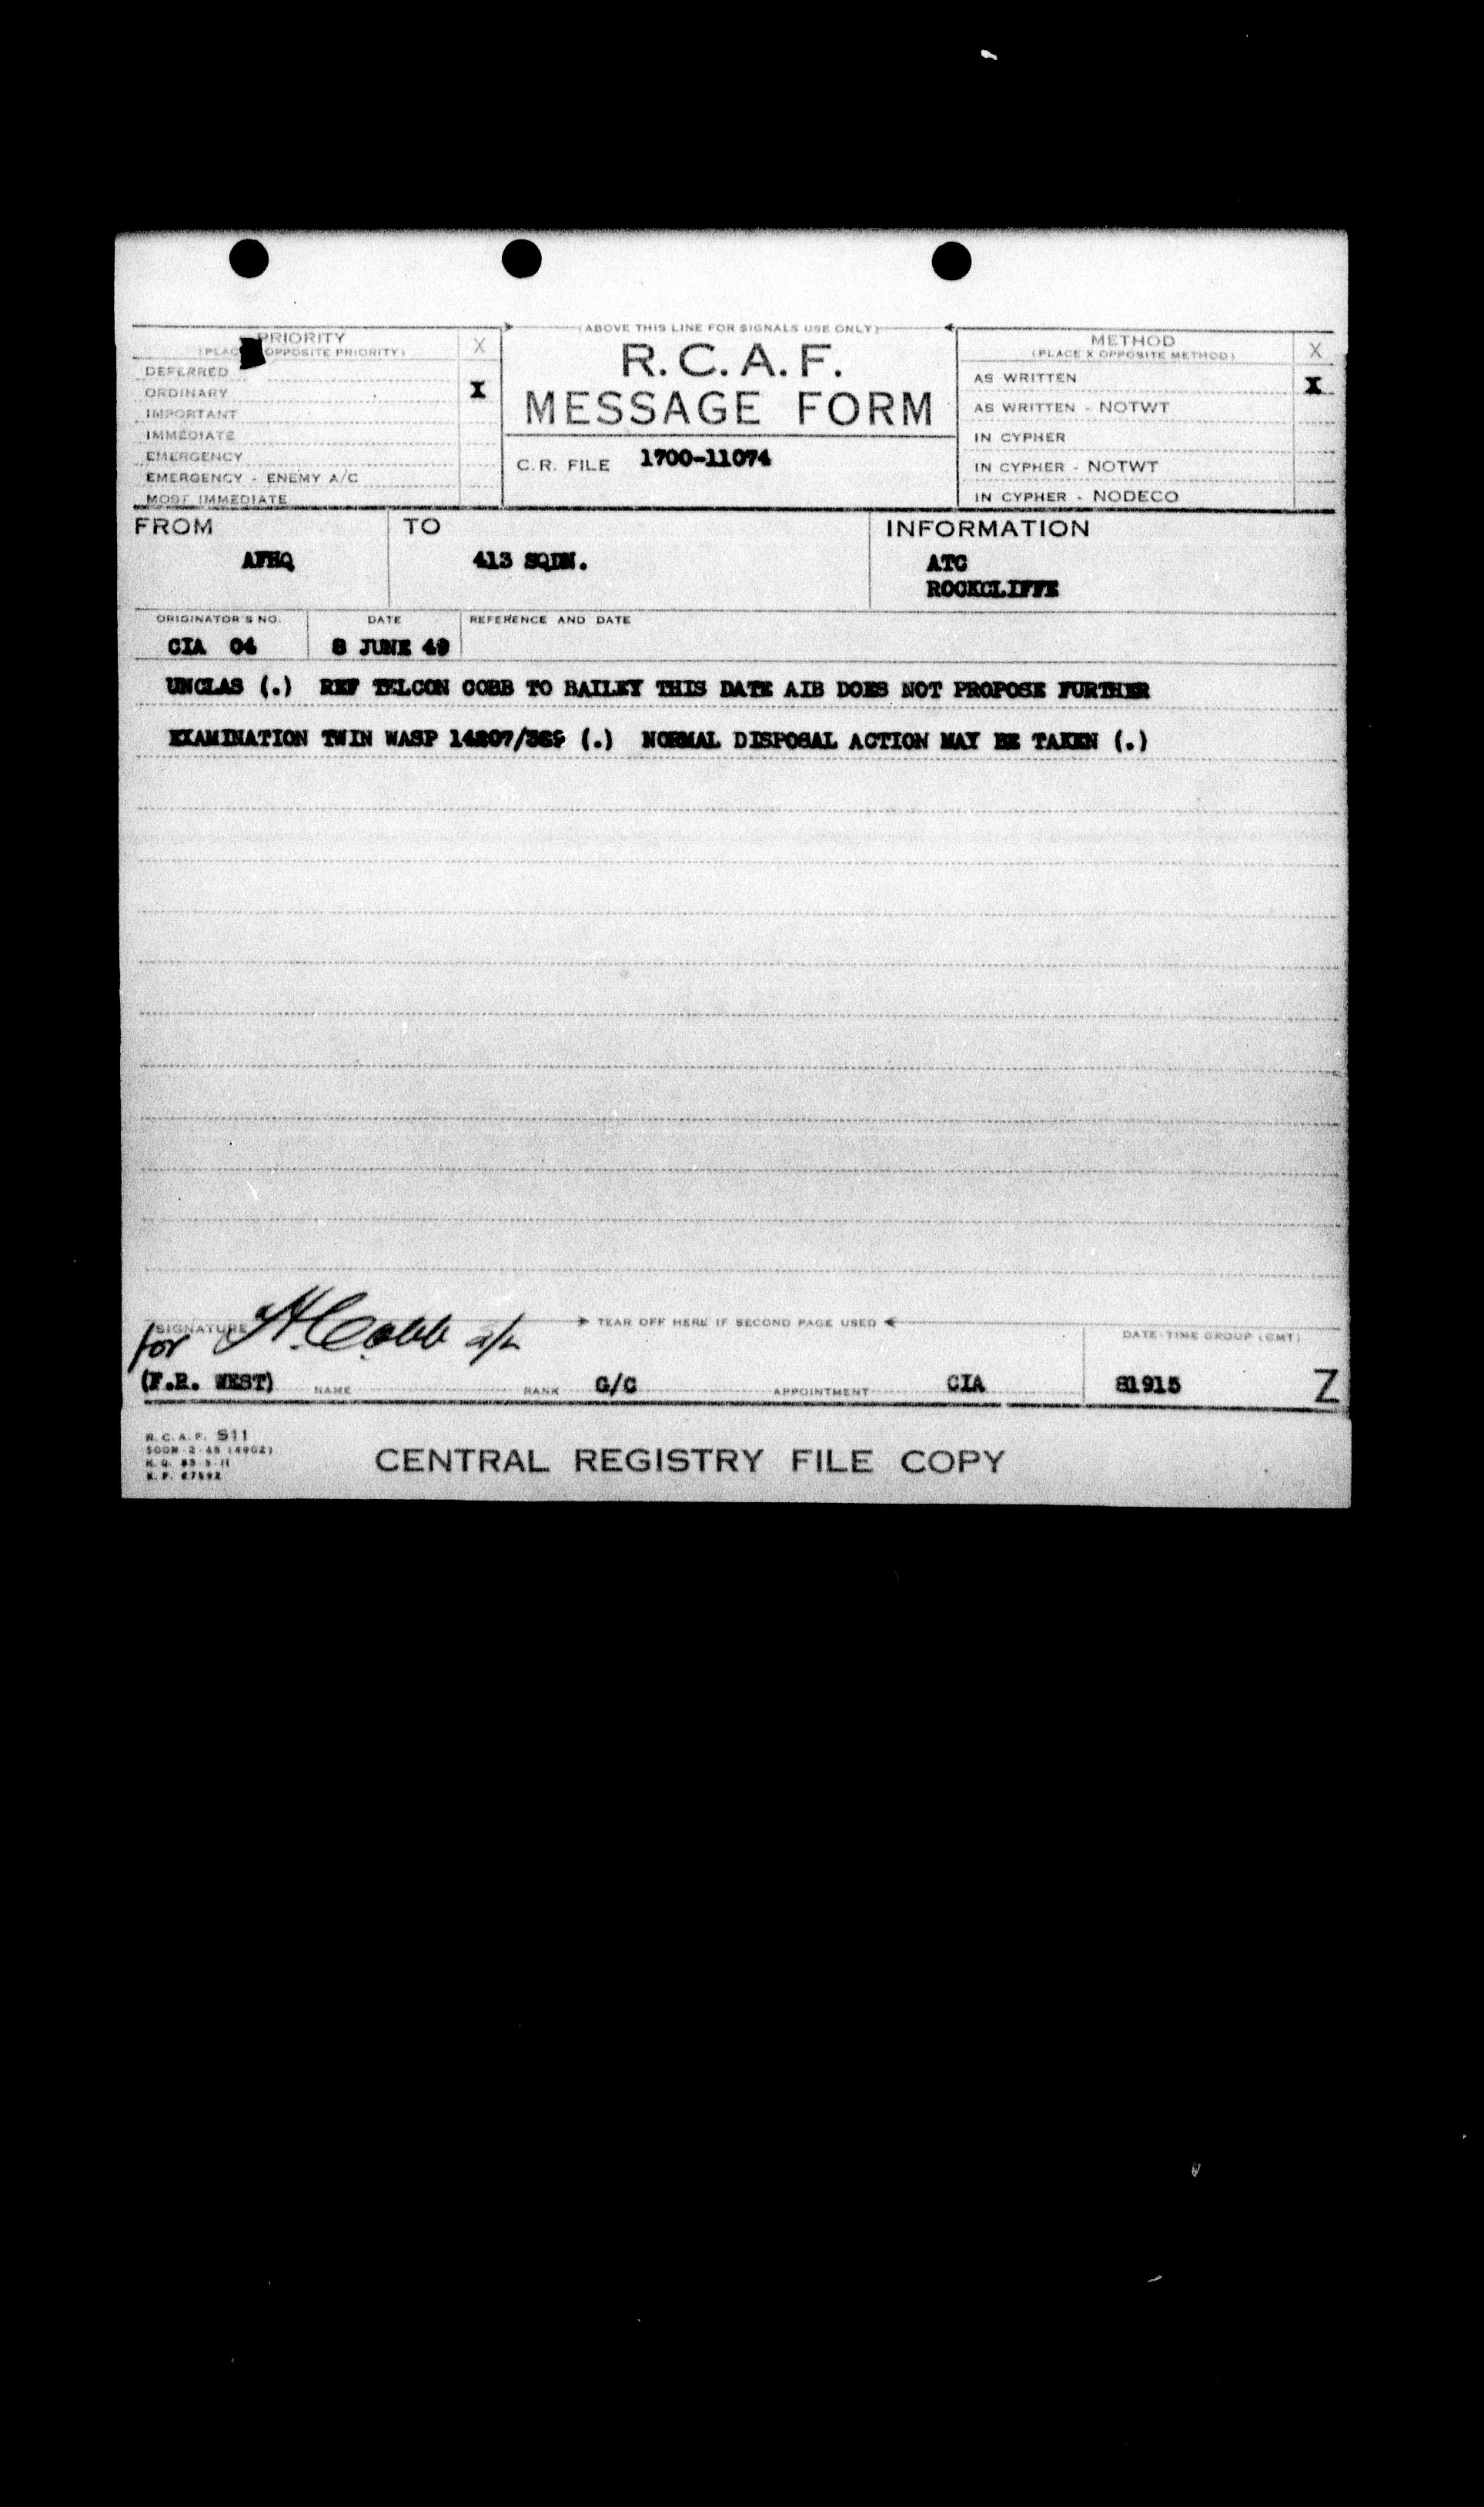 (ABOVE THIS LINE FOR SIGNALS USE ONLY)
PRIORITY X
(PLACE OPPOSITE PRIORITY)
DEFERRED
ORDINARY X
IMPORTANT
IMMEDIATE
EMERGENCY
EMERGENCY - ENEMY A/C
MOST IMMEDIATE
R.C.A.F.
MESSAGE FORM
C.R. FILE 1700-11074
METHOD X
(PLACE X OPPOSITE METHOD)
AS WRITTEN X
AS WRITTEN - NOTWT
IN CYPHER
IN CYPHER - NOTWT
IN CYPHER - NODECO
FROM
AFHQ
TO
413 SQDN.
INFORMATION
ATC
ROCKCLIFFE
ORIGINATOR'S NO.
CIA 04
DATE
8 JUNE 49
REFERENCE AND DATE
UNCLAS (.) REF TELCON COBB TO BAILEY THIS DATE AIB DOES NOT PROPOSE FURTHER
EXAMINATION TWIN WASP (.) NORMAL DISPOSAL ACTION MAY BE TAKEN (.)
TEAR OFF HERE IF SECOND PAGE USED
SIGNATURE
for Cobb
DATE-TIME GROUP (GMT)
(F.R. WEST) NAME RANK G/C APPOINTMENT CIA 81915 Z
R.C.A.F. S11
500M-2-45 (4902)
CENTRAL REGISTRY FILE COPY